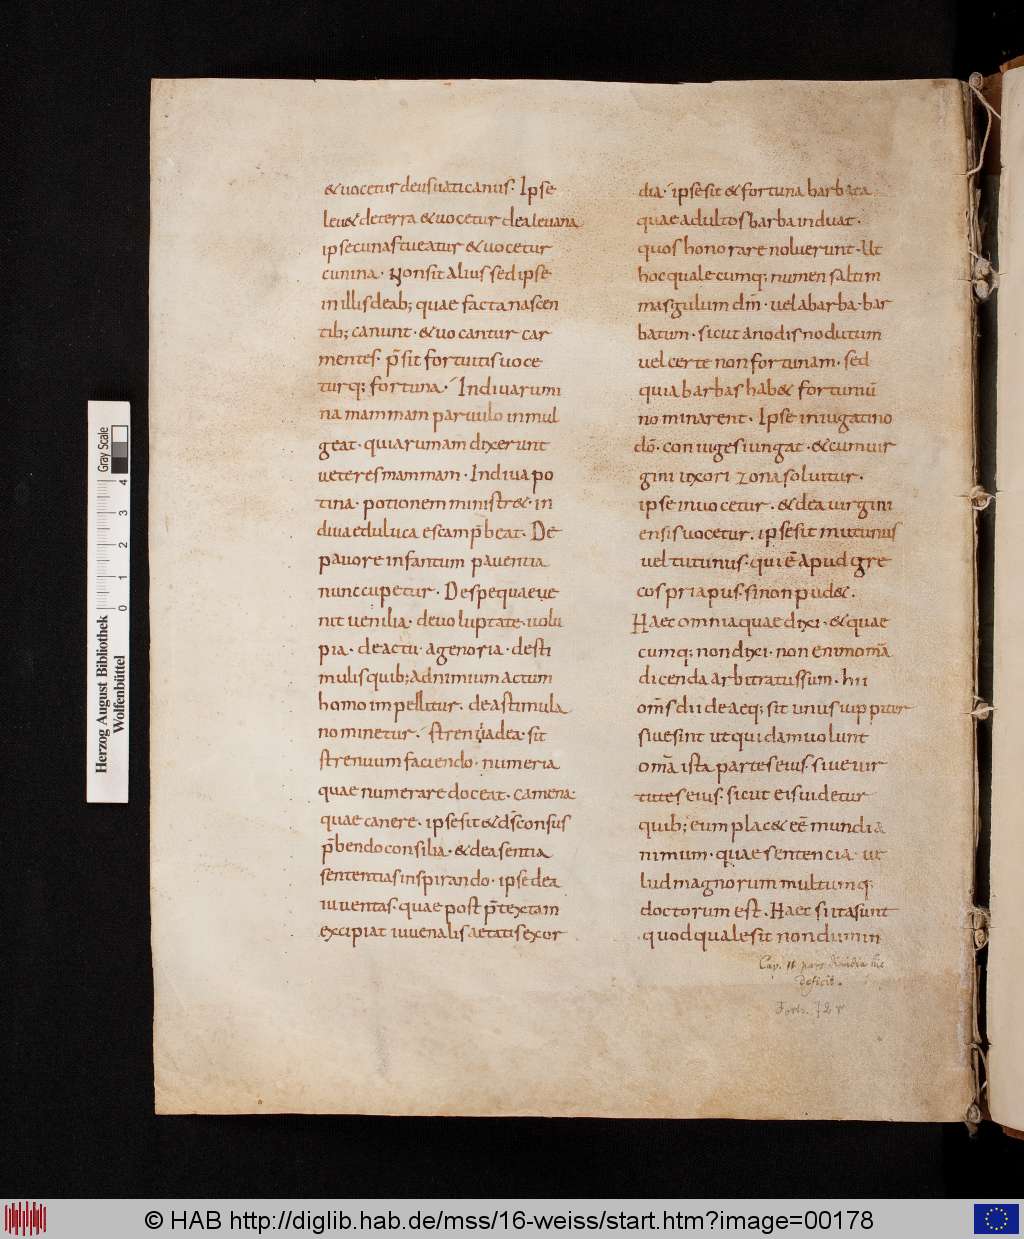 &uocetur deus uaticanus. Ipse
leu& de terra &uocetur dea leuana
ipse cunas tueatur &uocetur
cunina. Non sit alius sed ipse
in illis deab; quae facta nascen
tib; canunt. &uocantur car
mentes. p̄sit fortuitis uoce
turq; fortuna. In diua rumi
na mammam paruulo inmul
geat. quia rumam dixerunt
ueteres mammam. In diua po
tina. potionem ministr&. in
diua eduluca escam p̄beat. De
pauore infantum pauentia
nunccupetur. De spe quae ue
nit uenilia. de uoluptate. uolu
pia. de actu. agenoria. de sti
mulis quib; ad nimium actum
homo impellitur. dea stimula
nominetur. strenua dea. sit
strenuum faciendo. numeria
quae numerare doceat. camena
quae canere. ipse sit & ds̄ consus
p̄bendo consilia. & dea sentia
sententias inspirando. ipse dea
iuuentas. quae post p̄textam
excipiat iuuenalis aetatis exor
dia. ipse sit & fortuna barbata
quae adultos barba induat.
quos honorare noluerunt. Ut
hoc qualecumq; numen saltim
masgulum dm̄. uel a barba. bar
batum. sicut a nodis nodutum
uel certe non fortunam. sed
quia barbas hab& fortuniū
nominarent. Ipse in iugatino
dō. coniuges iungat. & cum uir
gini uxori zona soluitur.
ipse inuocetur. & dea uirgini
ensis uocetur. ipse sit mutunus
uel tutunus. qui ē apud gre
cos priapus. si non pud&.
Haec omnia quae dixi. & quae
cumq; non dixi. non enim om̄a
dicenda arbitratus sum. hii
om̄s dii deaeq; sit unus iuppiter
siue sint ut quidam uolunt
om̄a ista partes eius. siue uir
tutes eius. sicut eis uidetur
quib; eum plac& eē mundi a
nimum. quae sentencia. ue
lud magnorum multumq;
doctorum est. Haec si ita sunt
quod quale sit nondum in
Cap. 11 pars dimidia hic
deficit.
© HAB http://diglib.hab.de/mss/16-weiss/start.htm?image=00178
Herzog August Bibliothek
Wolfenbüttel
Gray Scale
0 1 2 3 4